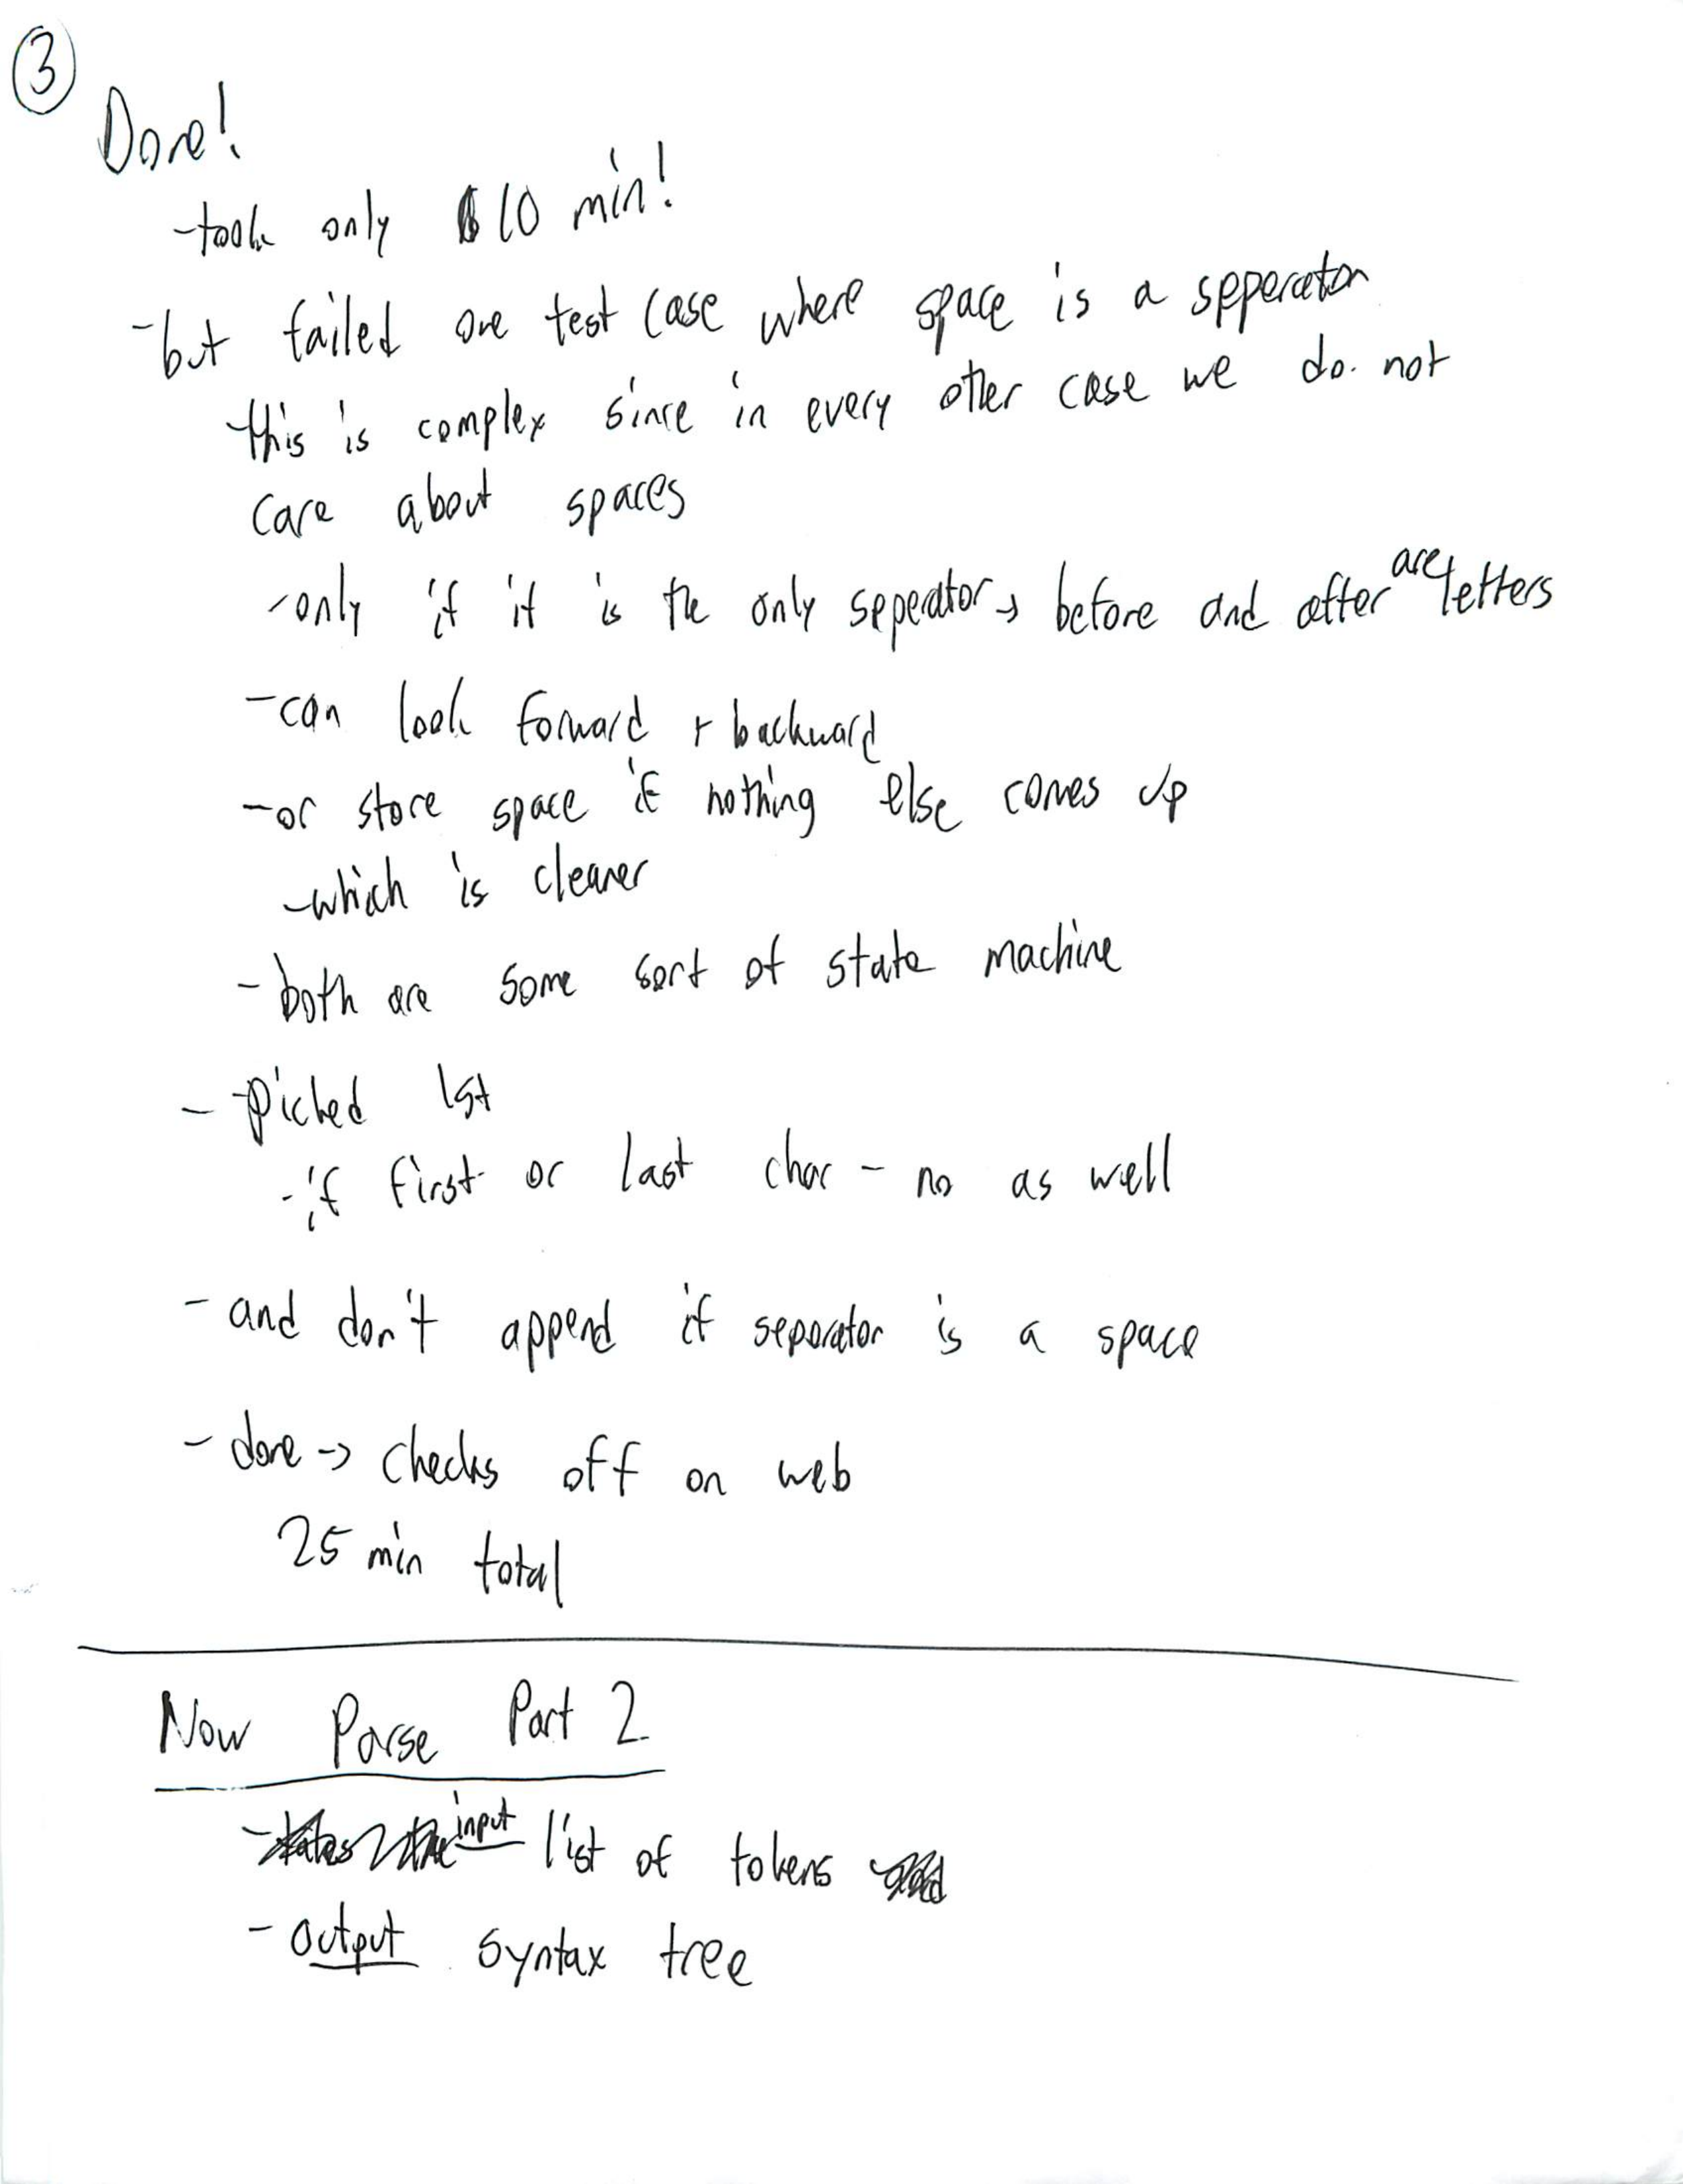 3
Done!
-took only 10 min!
-but failed one test case where space is a spperator
this is complex since in every other case we do not
care about spaces
-only if it is the only seperator → before and after are letters
-can look forward + backward
-or store space if nothing else comes up
-which is cleaner
-both are some sort of state machine
- picked 1st
-if first or last char - no as well
- and don't append if separator is a space
- done -> checks off on web
25 min total
Now Parse Part 2
- input list of tokens
- output syntax tree